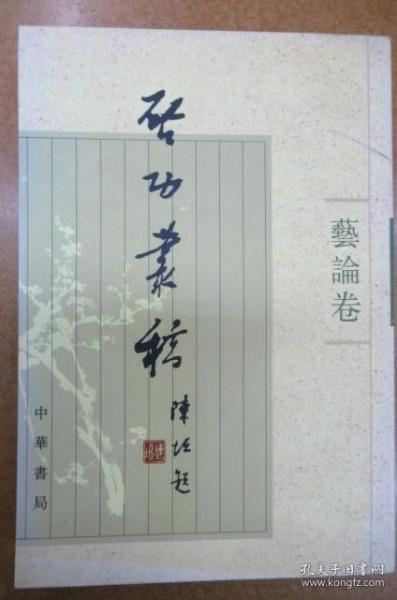 啓功叢稿
陳垣題
藝論卷
中華書局
孔夫子旧书网
www.kongfz.com